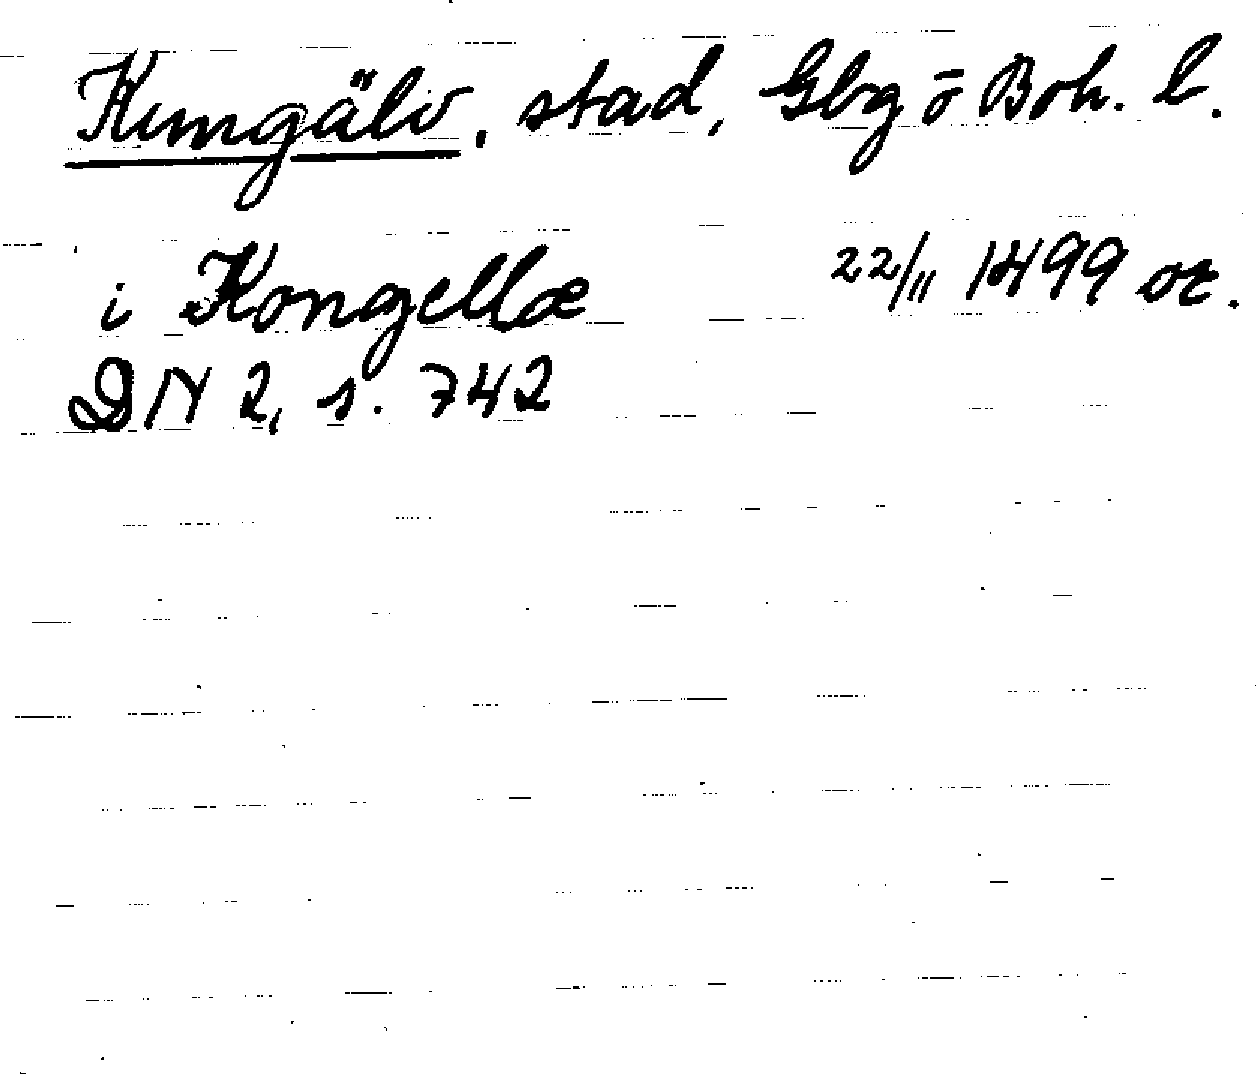 Kungälv, stad, Gbg o Boh. l.
i Kongellæ 22/11 1499 or.
DN 2, s. 742